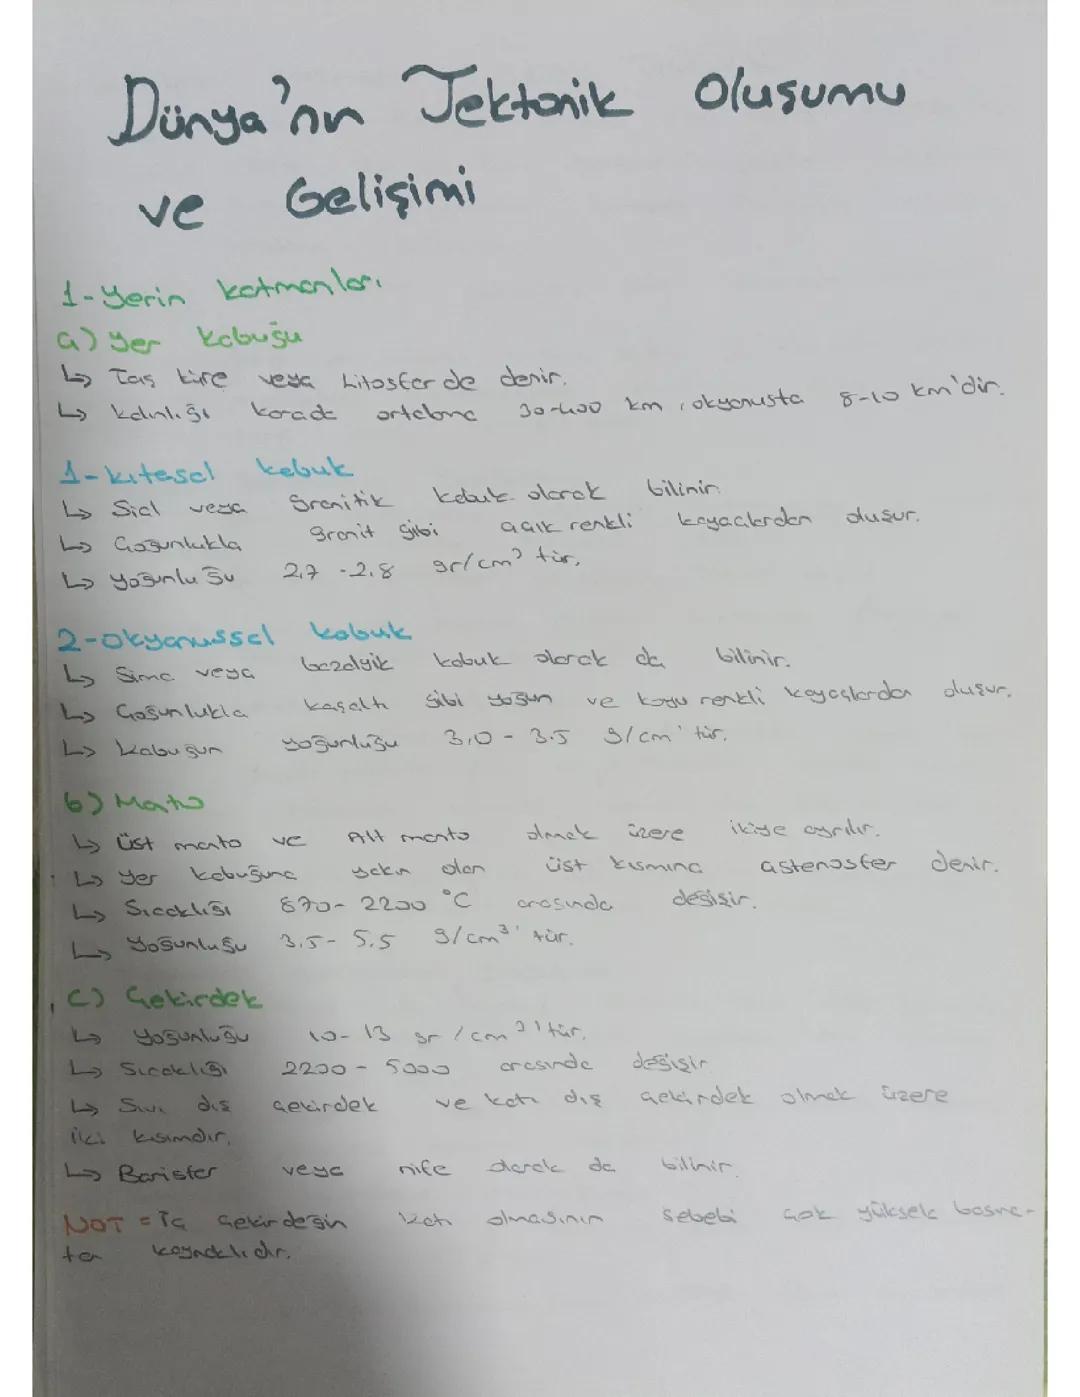 Dünya'nın Tektonik Oluşumu
ve Gelişimi
1-Yerin katmanları
a) Yer kabuğu
↳ Taş küre veya Litosfer de denir.
↳ kalınlığı karada ortalama 30-400 km, okyanusta 8-10 km'dir.
1-kıtasal kabuk
↳ Sial veya granitik kabuk olarak bilinir.
↳ Çoğunlukla granit gibi açık renkli kayaçlardan oluşur.
↳ Yoğunluğu 2,7 -2,8 gr/cm³ tür.
2-Okyanussal kabuk
↳ Sima veya bazaltik kabuk olarak da bilinir.
↳ Çoğunlukla gibi yoğun ve koyu renkli kayaçlardan oluşur.
↳ kabuğun yoğunluğu 3,0 - 3.5 g/cm' tür.
b) Manto
↳ Üst manto ve Alt manto olmak üzere ikiye ayrılır.
↳ Yer kabuğuna yakın olan üst kısmına astenosfer denir.
↳ Sıcaklığı 870- 2200 °C arasında değişir.
↳ Yoğunluğu 3.5- 5.5 g/cm³' tür.
C) Çekirdek
↳ Yoğunluğu 10- 13 gr /cm³'tür.
↳ Sıcaklığı 2200 - 5000 arasında değişir
↳ Sıvı dış çekirdek ve katı dış çekirdek olmak üzere
iki kısımdır.
↳ Barisfer veya nife olarak da bilinir.
NOT = İç çekirdeğin katı olmasının sebebi çok yüksek basınç-
tan kaynaklıdır.